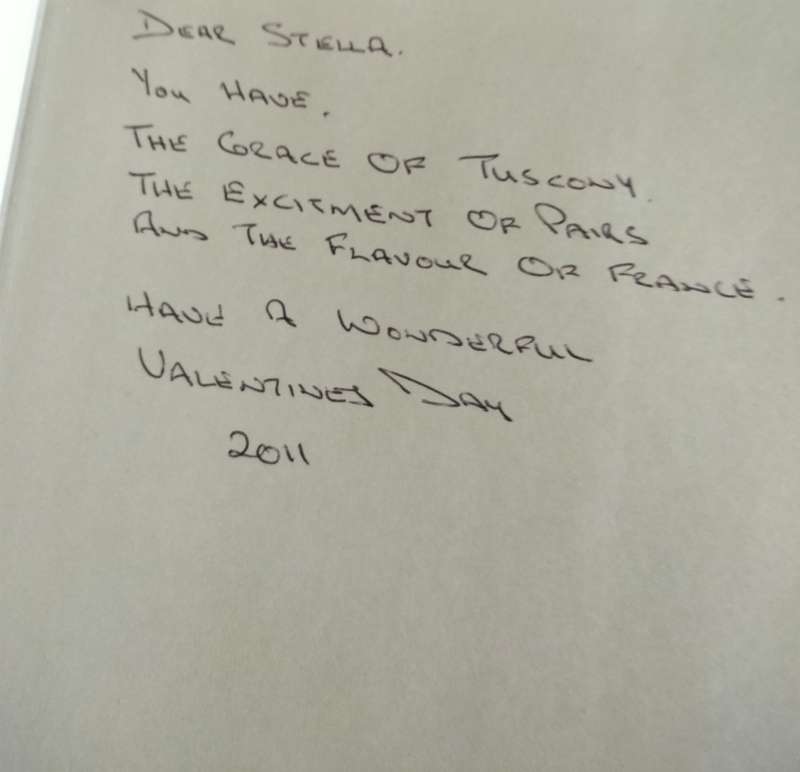 DEAR STELLA.
YOU HAVE.
THE GRACE OF TUSCONY.
THE EXCITMENT OF PAIRS
AND THE FLAVOUR OF FRANCE.
HAVE A WONDERFUL
VALENTINES DAY
2011